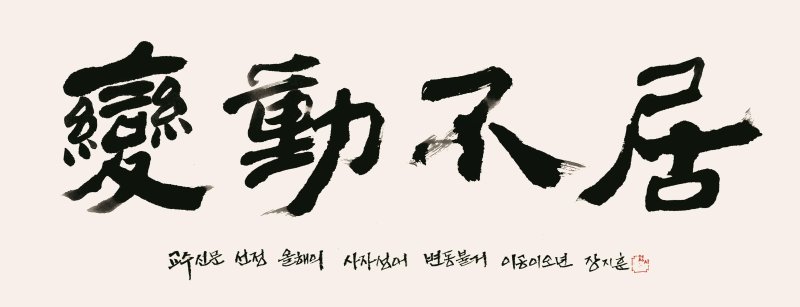 變動不居
교수신문 선정 올해의 사자성어 변동불거 이동이소년 장지훈